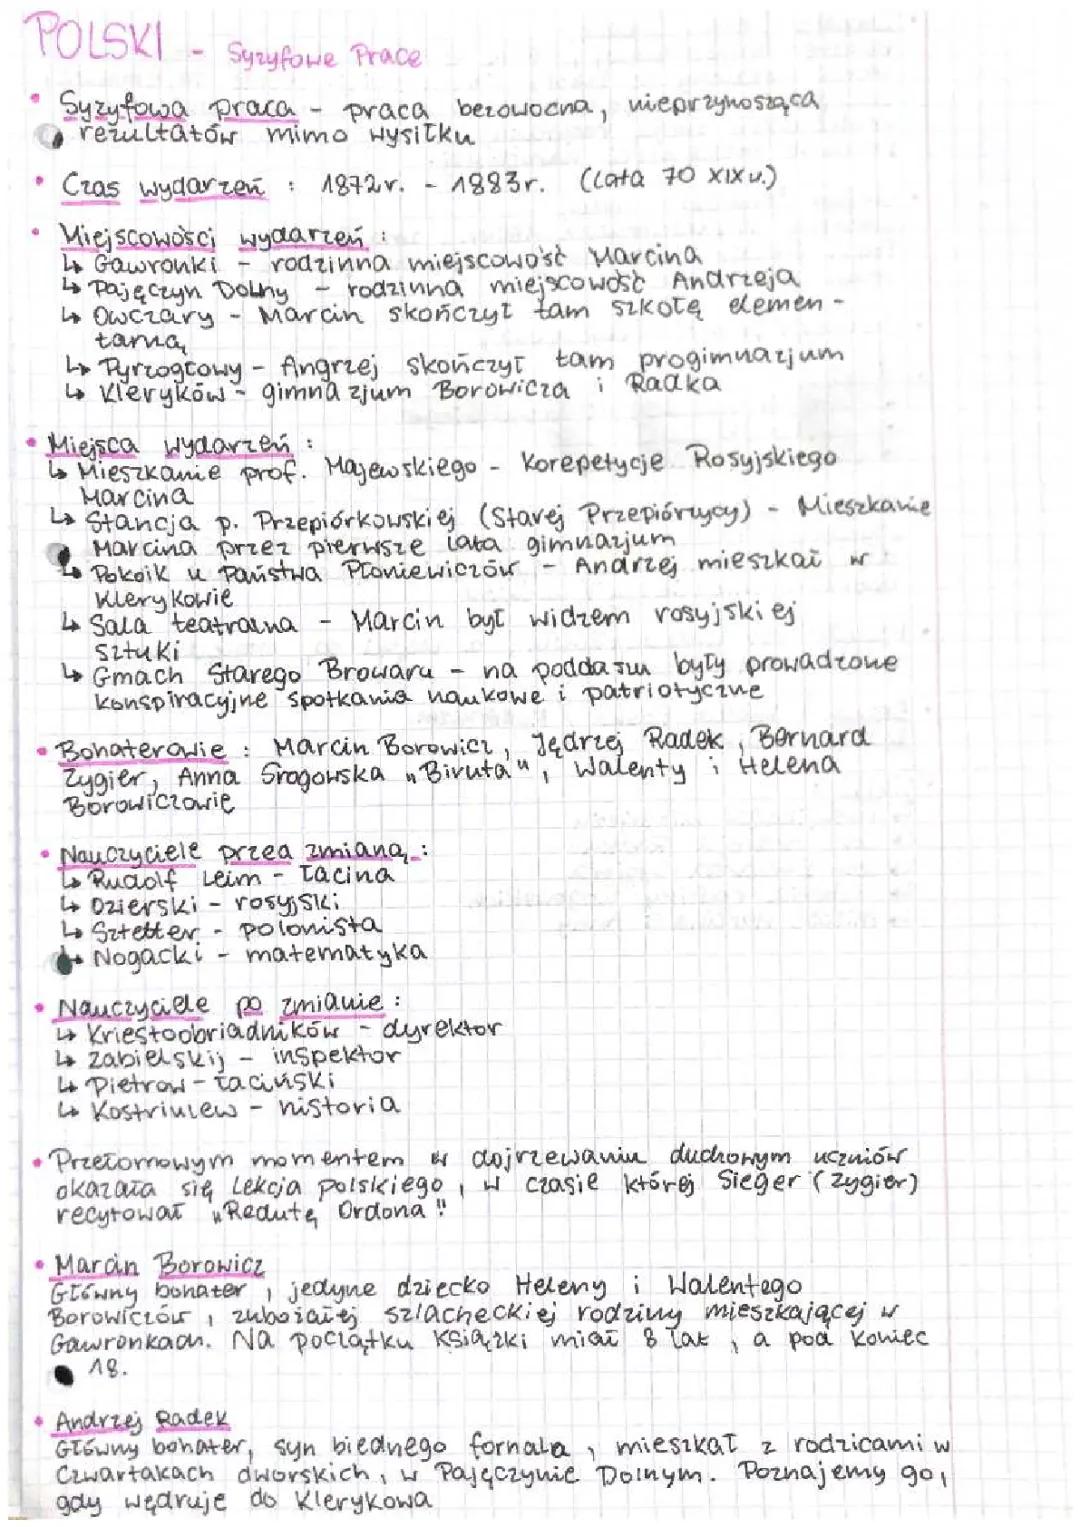 POLSKI - Syzyfowe Prace
• Syzyfowa praca - praca bezowocna, nieprzynosząca
rezultatów mimo wysiłku
• Czas wydarzeń : 1872r. - 1883r. (Lata 70 XIXw.)
• Miejscowości wydarzeń :
↳ Gawronki - rodzinna miejscowość Marcina
↳ Pajęczyn Dolny - rodzinna miejscowość Andrzeja
↳ Owczary - Marcin skończył tam szkołę elemen-
tarną
↳ Pyrzogłowy - Angrzej skończył tam progimnazjum
↳ Kleryków - gimnazjum Borowicza i Radka
• Miejsca wydarzeń :
↳ Mieszkanie prof. Majewskiego - Korepetycje Rosyjskiego
Marcina
↳ Stancja p. Przepiórkowskiej (Starej Przepiórzycy) - Mieszkanie
Marcina przez pierwsze lata gimnazjum
↳ Pokoik u Państwa Płoniewiczów - Andrzej mieszkał w
Klerykowie
↳ Sala teatralna - Marcin był widzem rosyjskiej
sztuki
↳ Gmach Starego Browaru - na poddaszu były prowadzone
konspiracyjne spotkania naukowe i patriotyczne
• Bohaterowie : Marcin Borowicz, Jędrzej Radek, Bernard
Zygier, Anna Srogowska „Biruta", Walenty i Helena
Borowiczowie
• Nauczyciele przed zmianą :
↳ Rudolf Leim - łacina
↳ Ozierski - rosyjski
↳ Sztetter - polonista
↳ Nogacki - matematyka
• Nauczyciele po zmianie :
↳ Kriestoobriadników - dyrektor
↳ Zabielskij - inspektor
↳ Pietrow - łaciński
↳ Kostriulew - historia
• Przełomowym momentem w dojrzewaniu duchowym uczniów
okazała się lekcja polskiego, w czasie której Sieger (Zygier)
recytował „Redutę Ordona"
• Marcin Borowicz
Główny bohater, jedyne dziecko Heleny i Walentego
Borowiczów, zubożałej szlacheckiej rodziny mieszkającej w
Gawronkach. Na początku książki miał 8 lat, a pod koniec
18.
• Andrzej Radek
Główny bohater, syn biednego fornala, mieszkał z rodzicami w
Czwartakach dworskich, w Pajęczynie Dolnym. Poznajemy go,
gdy wędruje do Klerykowa